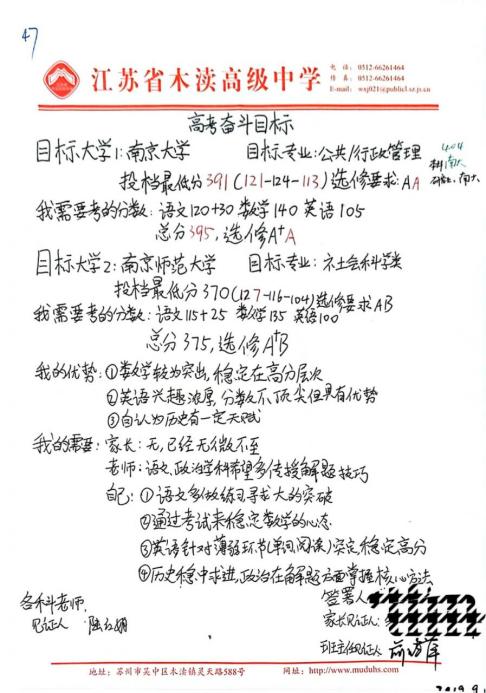 47
江苏省木渎高级中学
电 话: 0512-66261464
传 真: 0512-66261464
E-mail: wxj021@publicl.sz.js.cn
高考奋斗目标
目标大学1:南京大学 目标专业:公共/行政管理
404
本科:南大
投档最低分391(121-124-113)选修要求:AA
我需要考的分数:语文120+30 数学140 英语105
总分395,选修A+A
目标大学2:南京师范大学 目标专业:社会科学类
投档最低分370(127-116-104)选修要求AB
我需要考的分数:语文115+25 数学135 英语100
总分375,选修A+B
我的优势:①数学较为突出,稳定在高分层次
②英语兴趣浓厚,分数不顶尖但具有优势
③自认为历史有一定天赋
我的需要:家长:无,已经无微不至
老师:语文、政治学科希望多传授解题技巧
自己:①语文多做练习寻求大的突破
②通过考试来稳定数学的心态
③英语针对薄弱环节(单词、阅读)突完稳定高分
④历史稳中求进,政治在解题方面掌握核心方法
各科老师 签署人
见证人 家长见证人:
班主任见证人
地址:苏州市吴中区木渎镇灵天路588号 网址:http://www.muduhs.com
2019.9.1